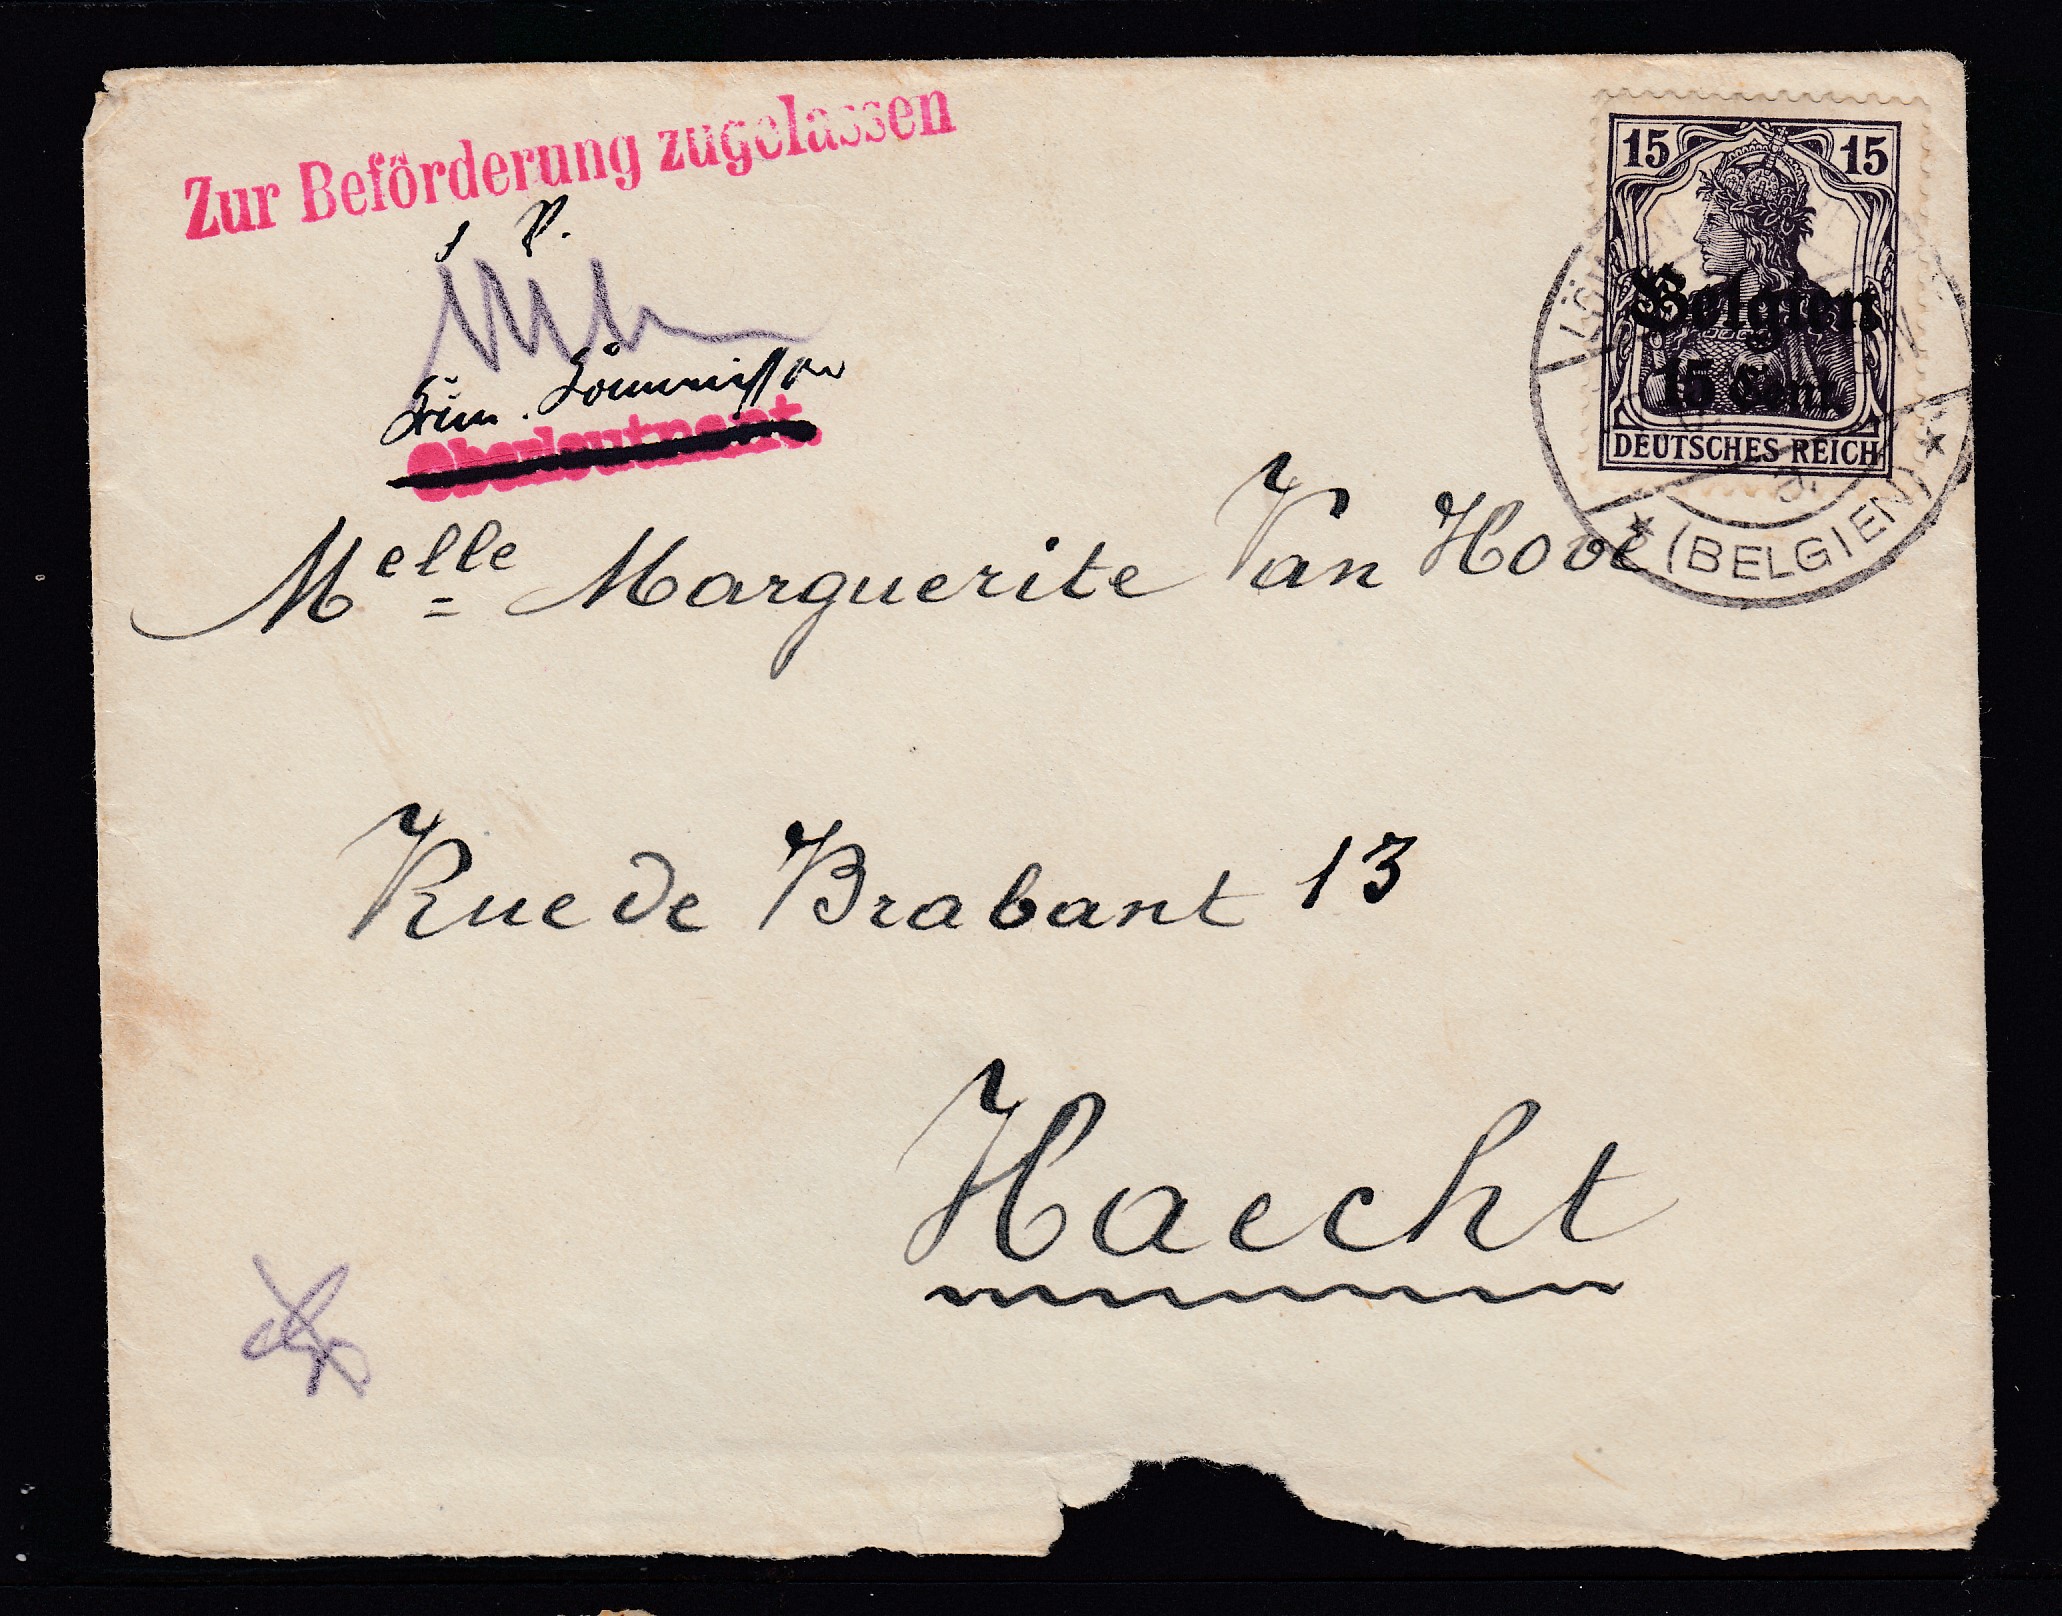 Zur Beförderung zugelassen
Krim. Kommissar
Oberleutnant.
15 15
Belgien
15 Cent.
DEUTSCHES REICH
(BELGIEN)
Melle Marguerite Van Hove
Rue de Brabant 13
Haecht